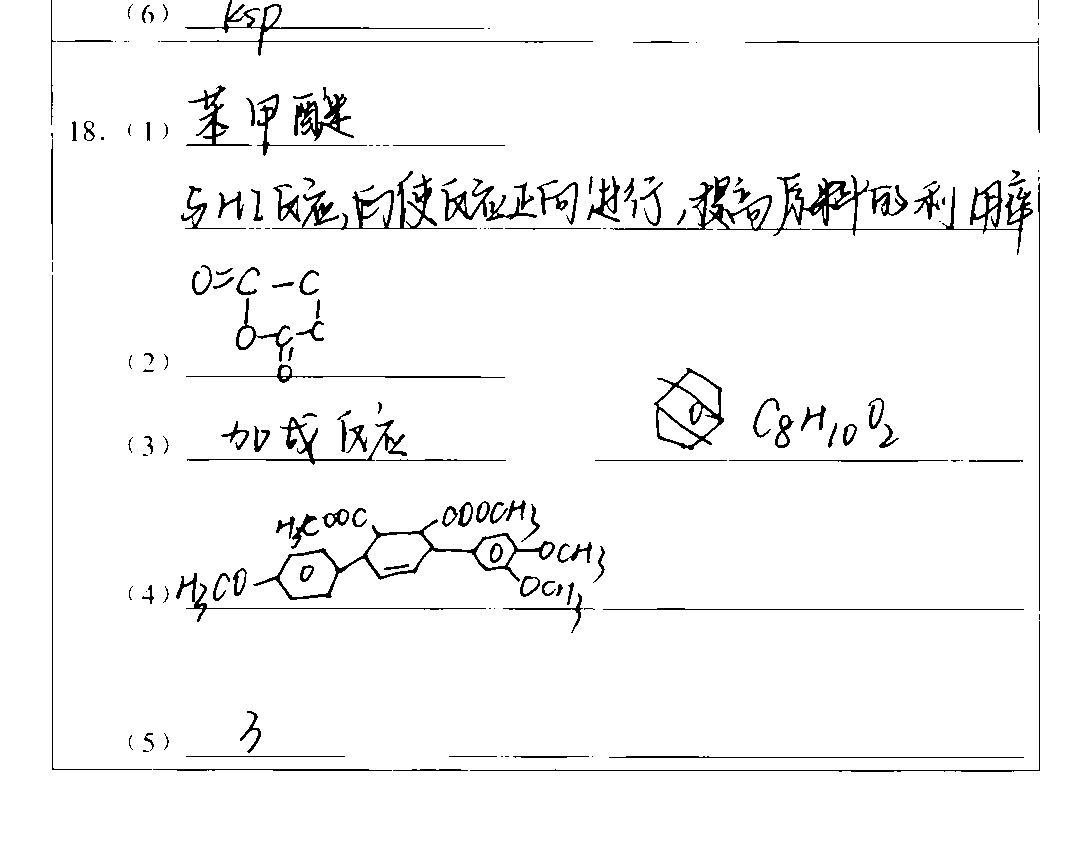 (6) Ksp
18. (1) 苯甲醚
与HI反应,向使反应正向进行,提高原料的利用率
O=C-C
O-C-C
O
(2)
(3) 加成反应 C8H10O2
H3COOC OOOCH3
OCH3
(4) H3CO
OCH3
(5) 3